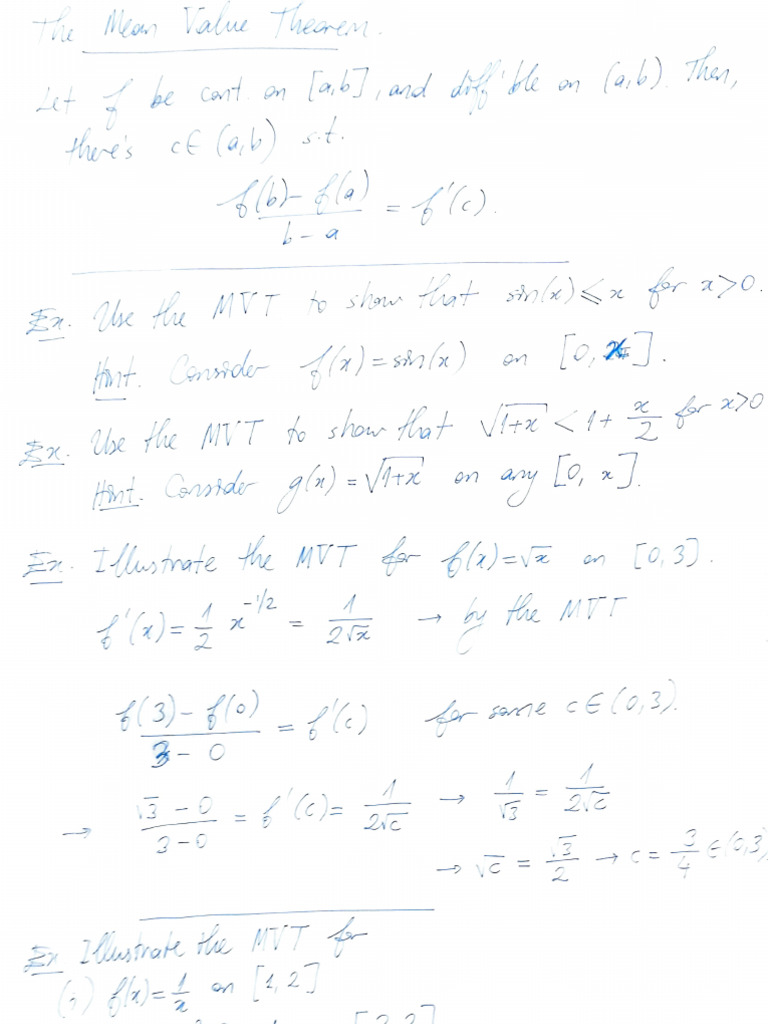 The Mean Value Theorem.
Let f be cont. on [a,b], and diff'ble on (a,b). Then,
there's c∈(a,b) s.t.
(f(b)-f(a))/(b-a) = f'(c).
Ex. Use the MVT to show that sin(x)⩽x for x>0.
Hint. Consider f(x)=sin(x) on [0, x].
Ex. Use the MVT to show that √(1+x) < 1+ x/2 for x>0
Hint. Consider g(x)=√(1+x) on any [0, x].
Ex. Illustrate the MVT for f(x)=√x on [0,3].
f'(x)= 1/2 x^(-1/2) = 1/(2√x) → by the MVT
(f(3)-f(0))/(3-0) = f'(c) for some c∈(0,3).
→ (√3-0)/(3-0) = f'(c)= 1/(2√c) → 1/√3 = 1/(2√c)
→ √c = √3/2 → c= 3/4 ∈(0,3)
Ex Illustrate the MVT for
f(x)=1/x on [1,2]